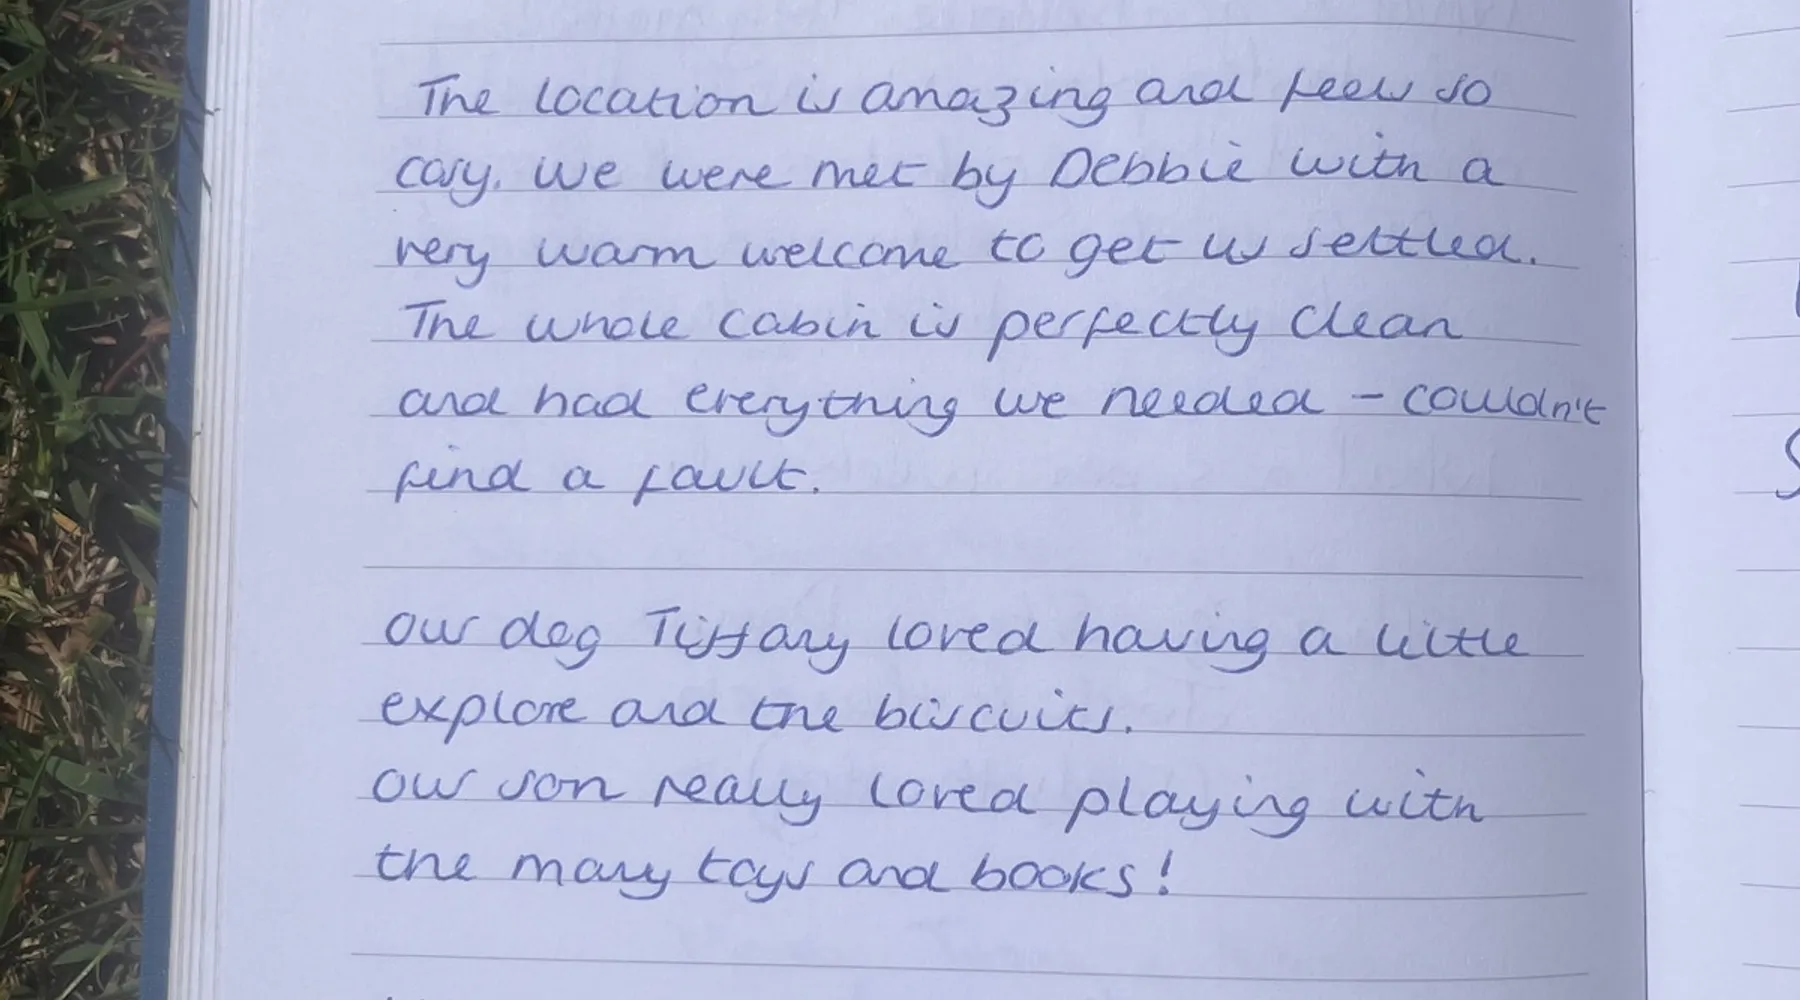 The location is amazing and feels so
cosy. We were met by Debbie with a
very warm welcome to get us settled.
The whole cabin is perfectly clean
and had everything we needed - couldn't
find a fault.
Our dog Tiffany loved having a little
explore and the biscuits.
Our son really loved playing with
the many toys and books!